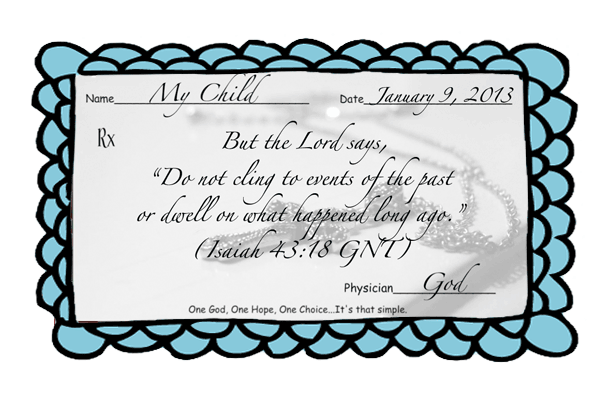 Name My Child Date January 9, 2013
Rx But the Lord says,
“Do not cling to events of the past
or dwell on what happened long ago.”
(Isaiah 43:18 GNT)
Physician God
One God, One Hope, One Choice...It's that simple.